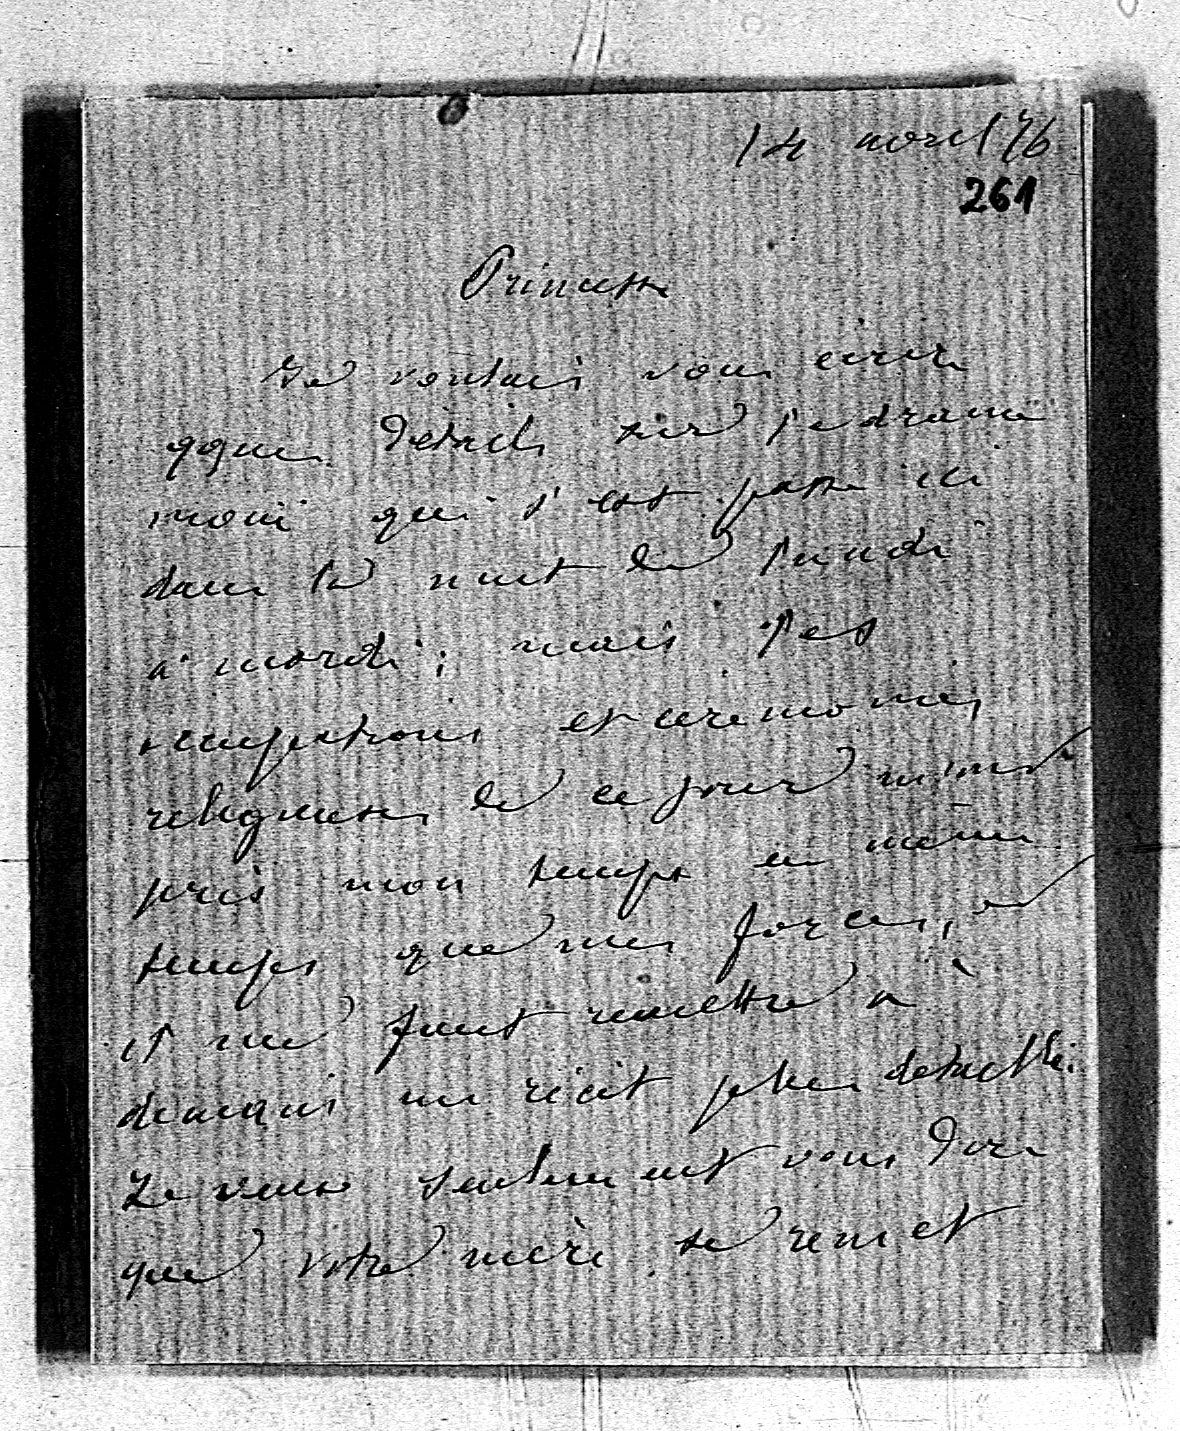 14 avril 76
261
Princesse
Je voulais vous écrire
qques détails sur le drame
inouï qui s'est passé ici
dans la nuit de lundi
à mardi; mais les
occupations et cérémonies
religieuses de ce jour m'ont
pris mon temps en même
temps que mes forces, et
il me faut remettre à
demain un récit plus détaillé.
Je veux seulement vous dire
que votre mère se remet